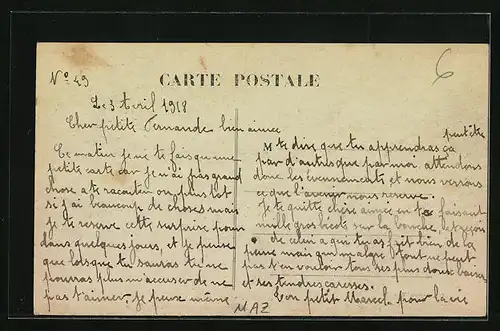 No 49
CARTE POSTALE
6
Le 3 Avril 1918
Cher petite Fernande bien aimée
Ce matin je ne te fais qu'une
petite carte car je n'ai pas grand
chose a te raconter ou plus tot
si j'ai beaucoup de choses mais
je te reserve cette surprise pour
dans quelques jours, et je pense
que lorsque tu sauras tu ne
pourras plus m'accuser de ne
pas t'aimer. Je peux même
peut être
te dire que tu apprendras ça
par d'autres que par moi attendons
donc les évennements et nous verrons
ce que l'avenir nous reserve.
Je te quitte chère aimée en te faisant
mille gros becots sur la bouche, et reçois
de celui a qui tu as fait bien de la
peine mais qui malgré tout ne peut
pas t'en vouloir tous ses plus doux baisers
et ses tendres caresses.
Ton petit Marcel pour la vie
MAZ